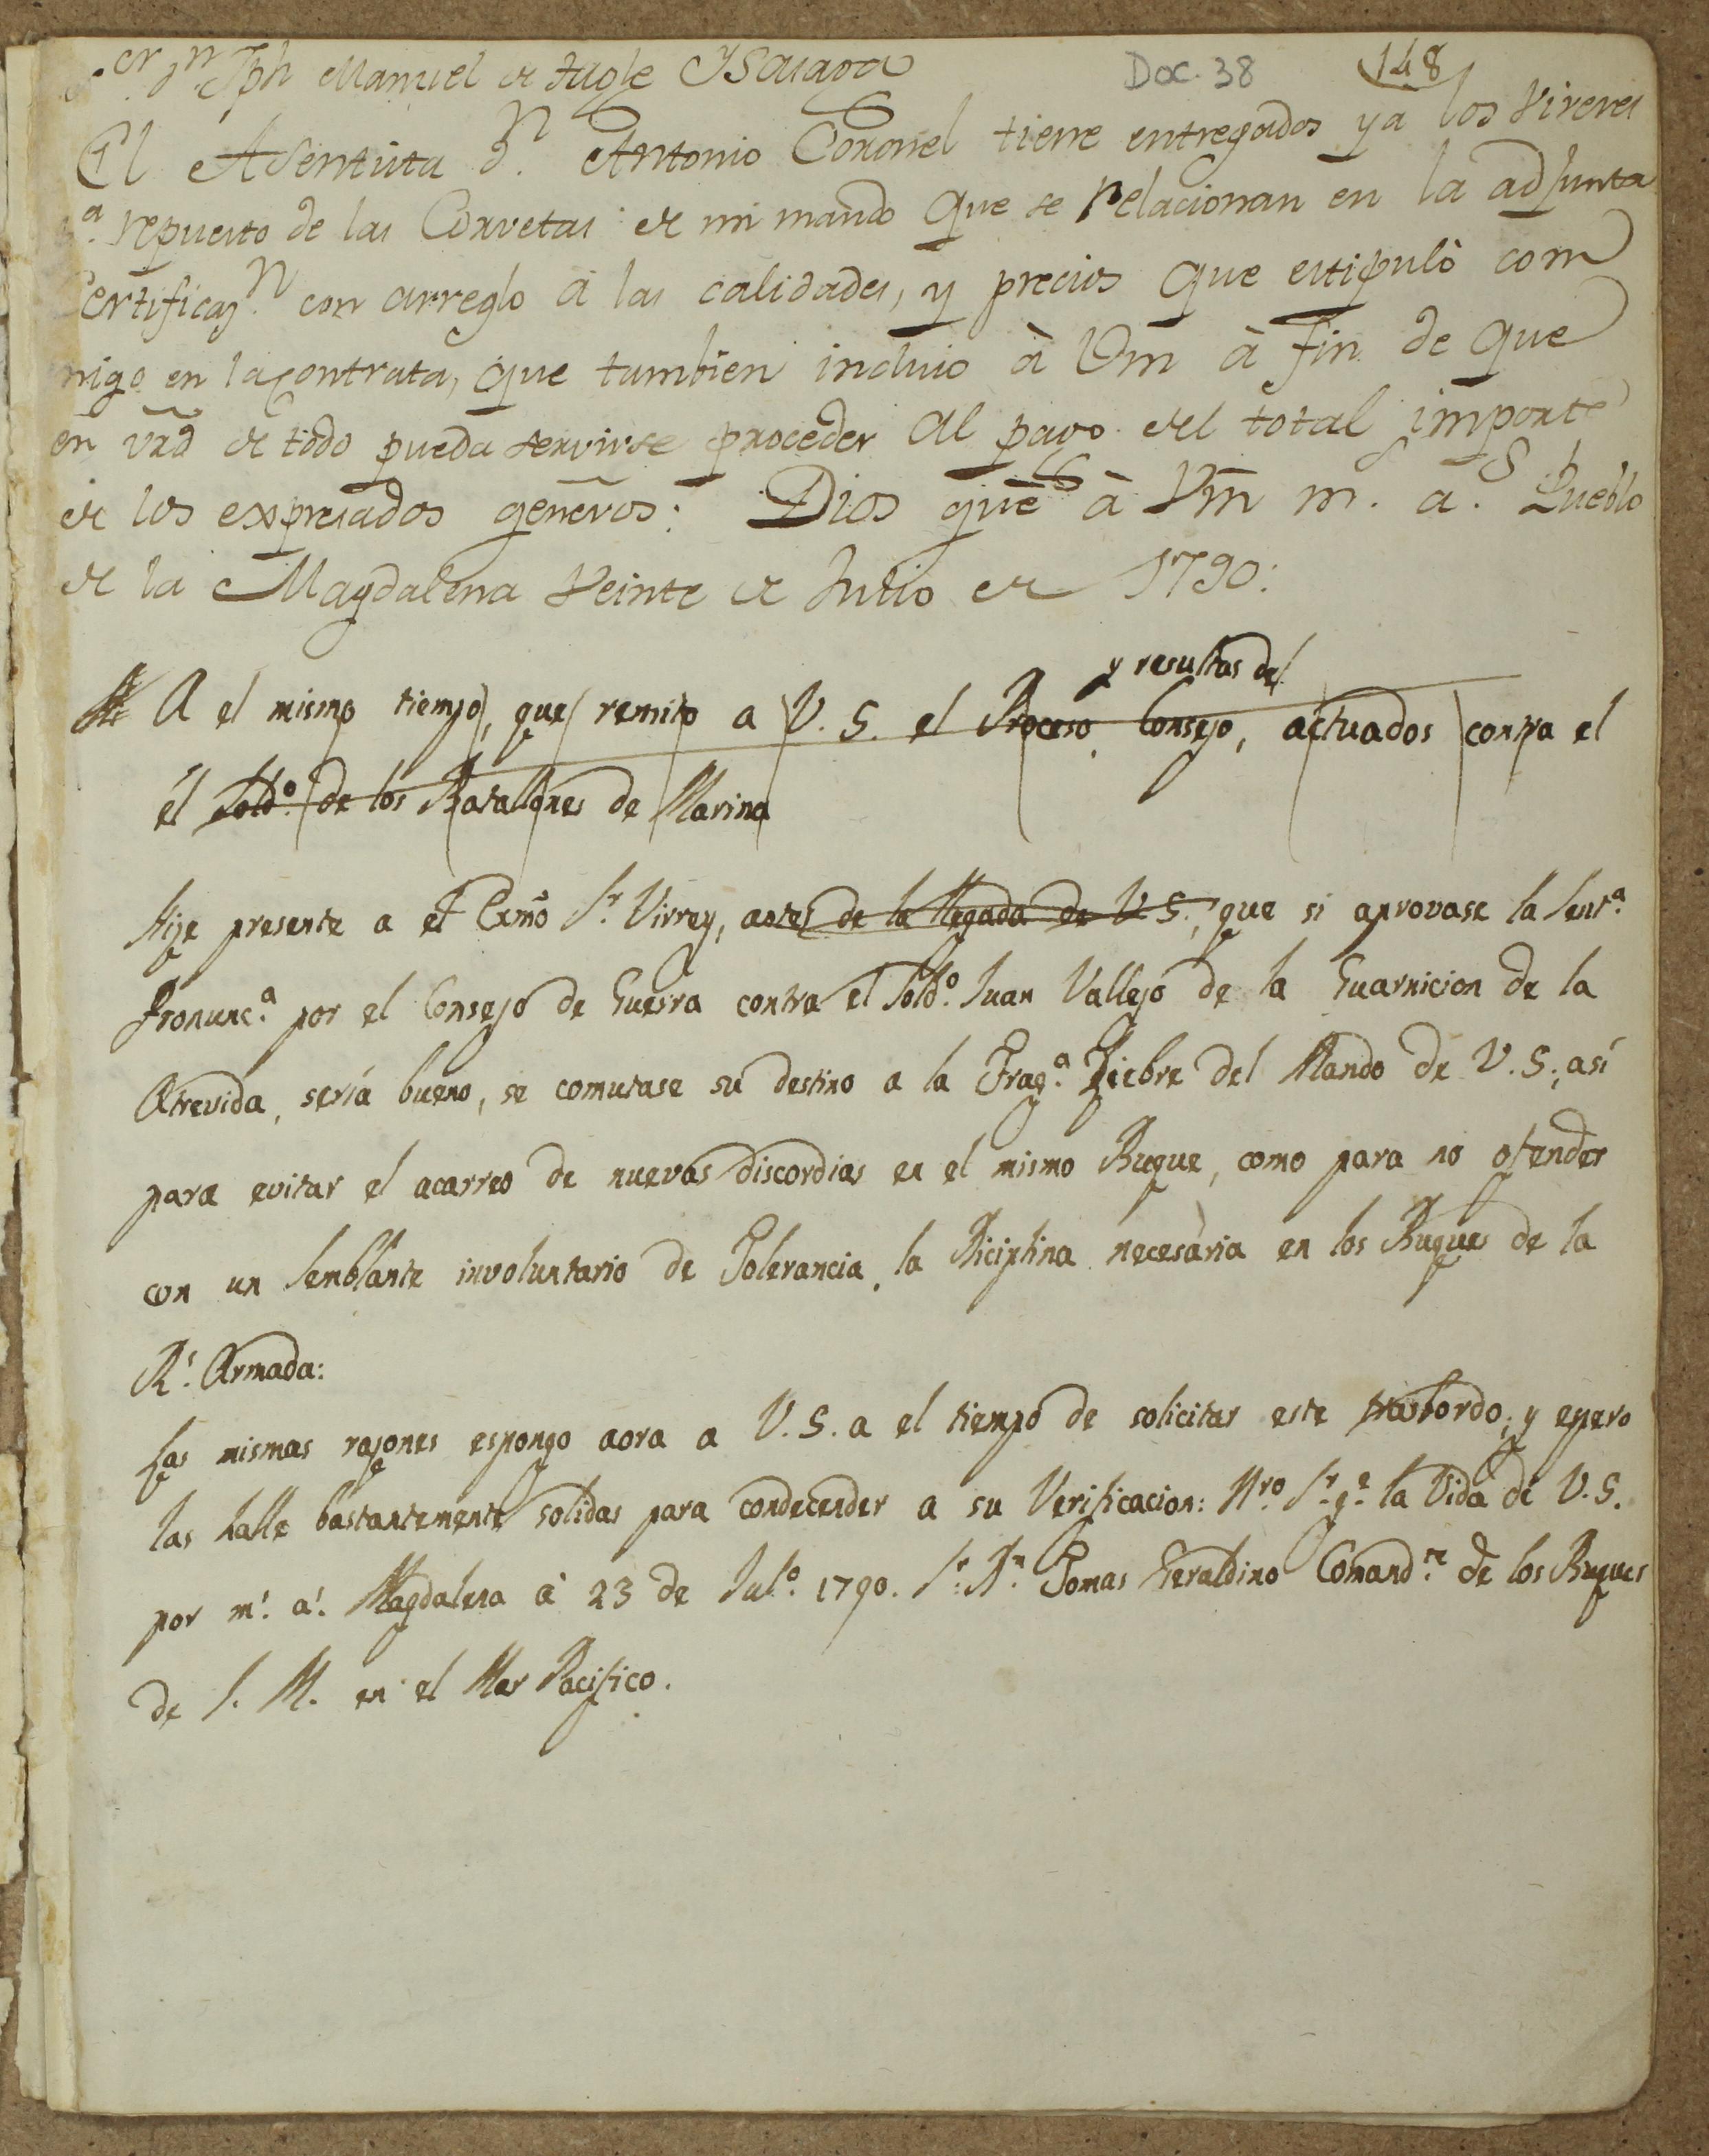 Doc. 38
148
Sor. Dn Jph Manuel de tagle Ysasaga
El Asentista Dn. Antonio Coronel tiene entregados ya los Viveres
pa. repuesto de las Corvetas de mi mando que se relacionan en la adjunta
Certificazn. con arreglo à las calidades, y precios que estipulò con
migo en la contrata, que tambien incluio à Vm à fin de que
en vrd de todo pueda servirse proceder al pago del total importe
de los expresados generos: Dios gue à Vm m. as. Pueblo
de la Magdalena Veinte de Julio de 1790:
y resultas del
A el mismo tiempo, que remito a V. S. el Proceso Consejo, actuados contra el
él Soldo. de los Batallones de Marina
Hize presente a el Exmo Sr. Virrey, antes de la llegada de V S., que si aprovase la Senta.
Pronunca. por el Consejo de Guerra contra el Soldo. Juan Vallejo de la Guarnicion de la
Atrevida, sería bueno, se comutase su destino a la Fraga. Liebre del Mando de V. S., así
para evitar el acarreo de nuevas discordias en el mismo Buque, como para no ofender
con un Semblante involuntario de Tolerancia, la Diciplina necesària en los Buques de la
Rl. Armada:
Las mismas razones espongo aora a V. S. a el tiempo de solicitar este trasbordo; y espero
las halle bastantemente solidas para condecender a su Verificacion: Nro. Sr. ge. la Vida de V. S.
por ms. as. Magdalena à 23 de Julo. 1790. Sr. Dn. Tomas Geraldino Comandte. de los Buques
de S. M. en el Mar Pacifico.